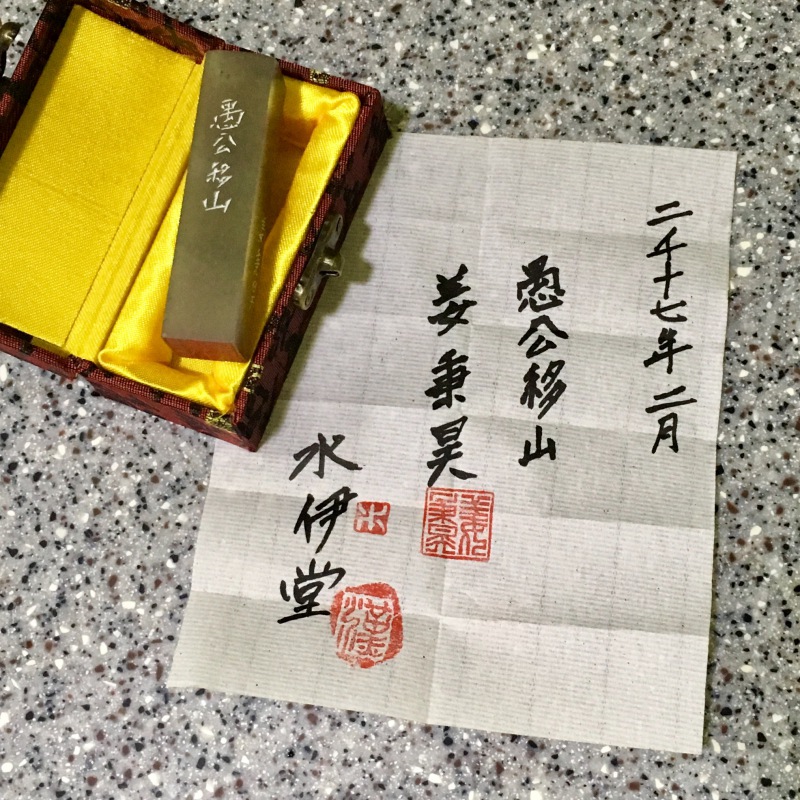 愚公移山
二千十七年 二月
愚公移山
姜秉昊
水伊堂